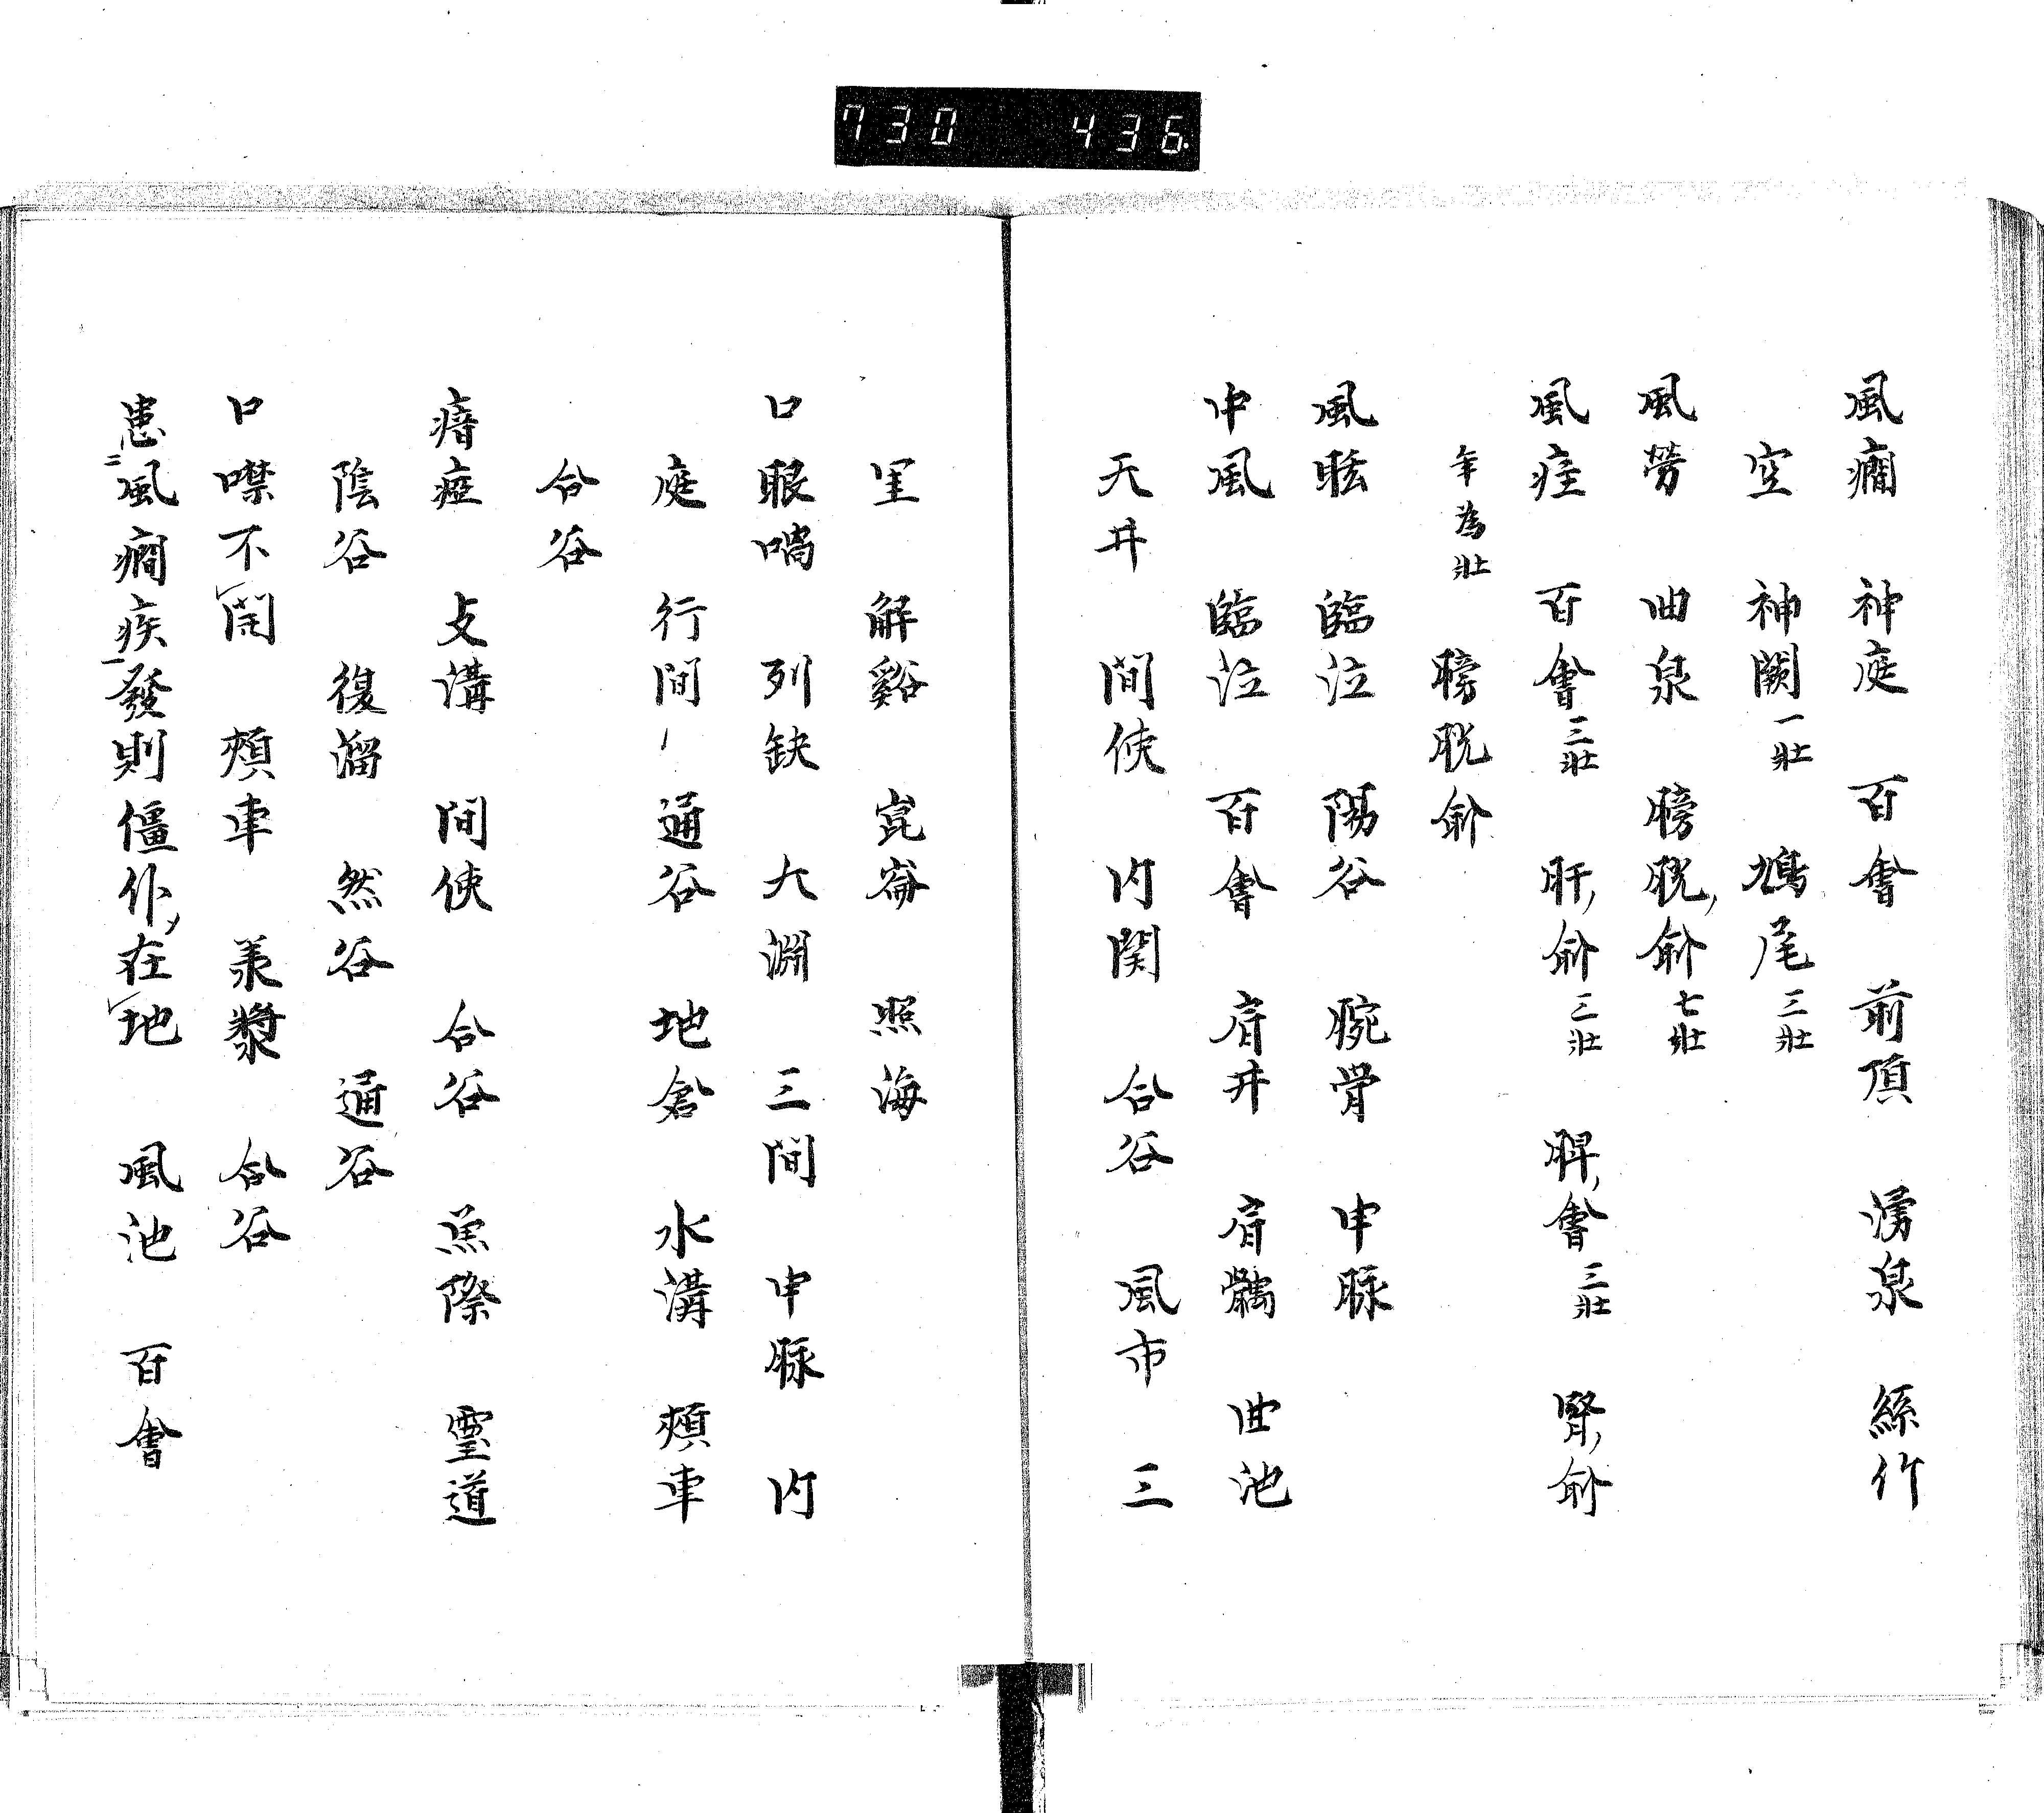 730 436
風癇 神庭 百會 前頂 湧泉 絲竹
空 神闕一壯 鳩尾三壯
風勞 曲泉 膀胱俞七壯
風疰 百會三壯 肝俞三壯 脾會三壯 腎俞
年為壯 膀胱俞
風眩 臨泣 陽谷 腕骨 申脉
中風 臨泣 百會 肩井 肩髃 曲池
天井 間使 内関 合谷 風市 三
里 解谿 崑崙 照海
口眼喎 列缺 大淵 三間 申脉 内
庭 行間 通谷 地倉 水溝 頰車
合谷
瘖瘂 支溝 間使 合谷 魚際 霊道
陰谷 復溜 然谷 通谷
口噤不開 頰車 羕漿 合谷
患二風癇疾一發則僵仆在レ地 風池 百會